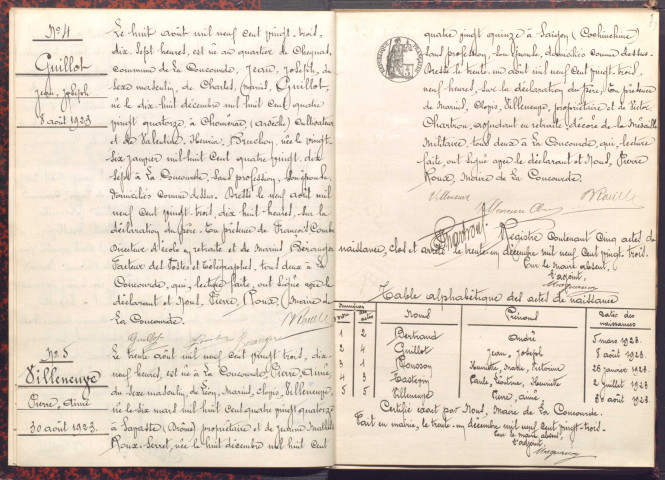 N° 4
Guillot
Jean, Joseph
8 août 1923
Le huit août mil neuf cent vingt-trois,
dix sept heures, est né au quartier de
commune de La Concourde, Jean, Joseph, du
sexe masculin, de Charles, Marius, Guillot,
né le dix huit décembre mil huit cent quatre
vingt quatorze à Chomérac (Ardèche) cultivateur
et de Valentine, Henria, née le vingt-
six janvier mil huit cent quatre vingt dix
sept à La Concourde, sans profession, son épouse,
domiciliés comme dessus. Dressé le neuf août mil
neuf cent vingt trois, dix huit heures, sur la
déclaration du père. En présence de François
Directeur d'école en retraite et de Marius Béranger
Facteur des Postes et Télégraphes, tous deux à La
Concourde, qui, lecture faite, ont signé avec le
déclarant et Nous, Pierre, Roux, Maire de
La Concourde.
Guillot
N° 5
Villeneuve
Pierre, Aimé
30 août 1923
Le trente août mil neuf cent vingt trois, dix-
neuf heures, est né à La Concourde, Pierre, Aimé,
du sexe masculin, de Léon, Marius, Elopis, Villeneuve,
né le dix mars mil huit cent quatre vingt quatorze
à (Drôme) propriétaire et de Jeanne
Roux-Serret, née le huit décembre mil huit cent
quatre vingt quinze à Saïgon (Cochinchine)
sans profession, son épouse, domiciliés comme dessus.
Dressé le trente un août mil neuf cent vingt trois,
neuf heures, sur la déclaration du père, En présence
de Marius, Elopis, Villeneuve, propriétaire et de Victor
Chartron, adjudant en retraite, décoré de la Médaille
Militaire, tous deux à La Concourde, qui, lecture
faite ont signé avec le déclarant et Nous, Pierre
Roux, Maire de La Concourde.
Villeneuve
Chartron
Registre contenant Cinq actes de
naissance, clos et arrêté le trente un décembre mil neuf cent vingt trois.
Pour le maire absent,
l'adjoint,
Table alphabétique des actes de naissance
Numéros Noms Prénoms Dates des naissances
1 2 Bertrand André 5 mars 1923
2 4 Guillot Jean, Joseph 8 août 1923
3 1 26 janvier 1923
4 3 2 juillet 1923
5 5 Villeneuve Pierre, Aimé 30 août 1923
Certifié exact par Nous, Maire de La Concourde.
Fait en mairie, le trente un décembre mil neuf cent vingt trois.
Pour le maire absent,
l'adjoint,